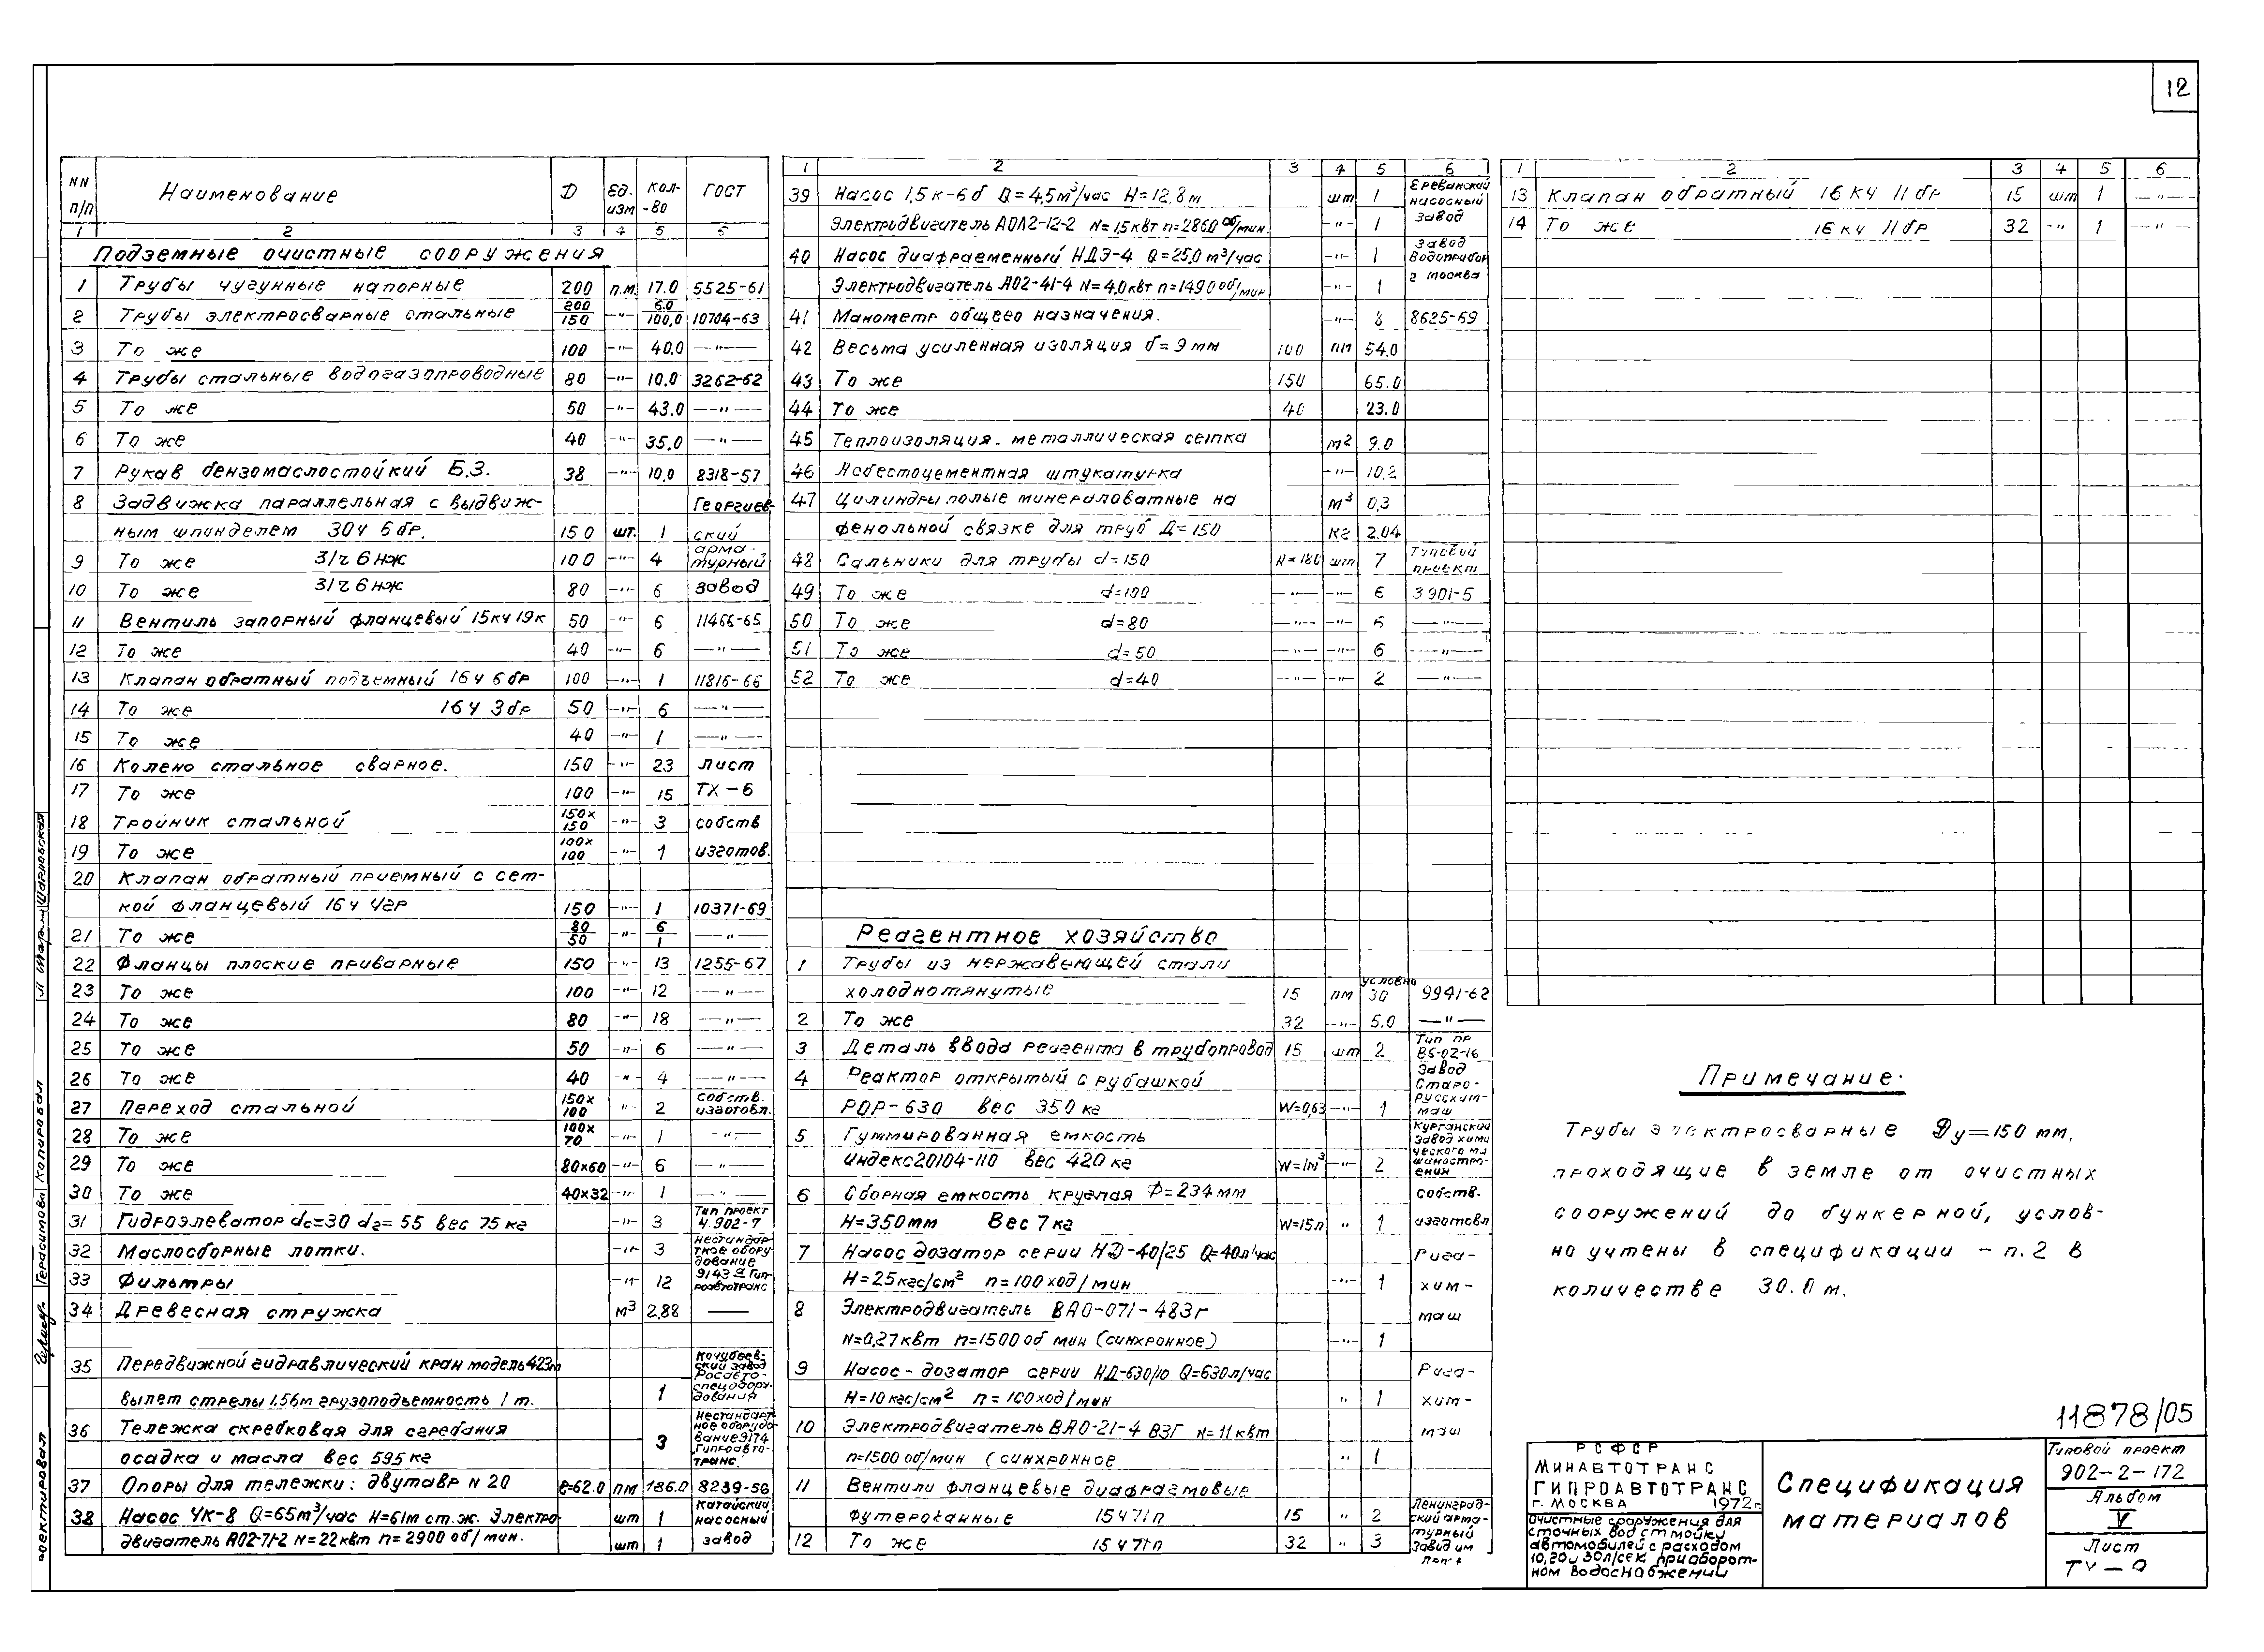 12
NN п/п Наименование D Ед. изм Кол-во ГОСТ
1 2 3 4 5 6
Подземные очистные сооружения
1 Трубы чугунные напорные 200 п.м. 17.0 5525-61
2 Трубы электросварные стальные 200/150 —"— 6.0/100,0 10704-63
3 То же 100 —"— 40.0 —"—
4 Трубы стальные водогазопроводные 80 —"— 10.0 3262-62
5 То же 50 —"— 43.0 —"—
6 То же 40 —"— 35.0 —"—
7 Рукав бензомаслостойкий Б.З. 38 —"— 10.0 8318-57
8 Задвижка параллельная с выдвиж- Георгиев-
ным шпинделем 30ч 6бр. 150 шт. 1 ский
9 То же 31ч 6нж 100 4 арма-турный
10 То же 31ч 6нж 80 —"— 6 завод
11 Вентиль запорный фланцевый 15кч19к 50 —"— 6 11466-65
12 То же 40 —"— 6 —"—
13 Клапан обратный подъемный 16ч 6бр 100 —"— 1 11816-66
14 То же 16ч 3бр 50 —"— 6 —"—
15 То же 40 —"— 1 —"—
16 Колено стальное сварное. 150 —"— 23 лист
17 То же 100 —"— 15 ТХ-6
18 Тройник стальной 150х150 —"— 3 собств
19 То же 100х100 —"— 1 изготов.
20 Клапан обратный приемный с сет-
кой фланцевый 16ч 42р 150 —"— 1 10371-69
21 То же 80/50 —"— 6/1 —"—
22 Фланцы плоские приварные 150 —"— 13 1255-67
23 То же 100 —"— 12 —"—
24 То же 80 —"— 18 —"—
25 То же 50 —"— 6 —"—
26 То же 40 " 4 —"—
27 Переход стальной 150х100 " 2 собств. изготовл.
28 То же 100х70 —"— 1 —"—
29 То же 80х60 —"— 6 —"—
30 То же 40х32 —"— 1 —"—
31 Гидроэлеватор dc=30 dг=55 вес 75кг —"— 3 Тип проект 4.902-7
32 Маслосборные лотки. —"— 3 нестандар-тное обору-дование
33 Фильтры —"— 12 9143 Гип-роавтотранс
34 Древесная стружка м³ 2,88 —
35 Передвижной гидравлический кран модель 423м Кочубеев-ский завод Росавто-
вылет стрелы 1,56м грузоподъемность 1 т. 1 спецобору-дования
36 Тележка скребковая для сгребания Нестандарт-ное оборудо-
осадка и масла вес 595кг 3 вание 9174 Гипроавто-транс.
37 Опоры для тележки: двутавр N 20 ℓ=62.0 пм 186.0 8239-56
38 Насос 4К-8 Q=65м³/час H=61м ст.ж. Электро- шт 1 Катайский насосный
двигатель АО2-71-2 N=22квт n=2900 об/мин. шт 1 завод
1 2 3 4 5 6
39 Насос 1,5к-6б Q=4,5м³/час H=12,8м шт 1 Ереванский насосный
Электродвигатель АОЛ2-12-2 N=1,5квт n=2860 об/мин. —"— 1 завод
40 Насос диафрагменный НДЭ-4 Q=25,0 м³/час —"— 1 завод Водоприбор
Электродвигатель АО2-41-4 N=4,0квт n=1490 об/мин —"— 1 г Москва
41 Манометр общего назначения. —"— 8 8625-69
42 Весьма усиленная изоляция δ=9мм 100 пм 54.0
43 То же 150 65.0
44 То же 40 23.0
45 Теплоизоляция - металлическая сетка м² 9.0
46 Асбестоцементная штукатурка —"— 10,2
47 Цилиндры полые минераловатные на м³ 0,3
фенольной связке для труб Д=150 кг 2.04
48 Сальники для трубы d=150 шт 7 Типовой проект
49 То же d=100 —"— —"— 6 3901-5
50 То же d=80 —"— —"— 6 —"—
51 То же d=50 —"— —"— 6 —"—
52 То же d=40 —"— —"— 2 —"—
Реагентное хозяйство
1 Трубы из нержавеющей стали
холоднотянутые 15 пм условно 30 9941-62
2 То же 32 —"— 5.0 —"—
3 Деталь ввода реагента в трубопровод 15 шт 2 Тип пр ВБ-02-16
4 Реактор открытый с рубашкой Завод Старо-
РОР-630 вес 350кг W=0,63 —"— 1 русхим-маш
5 Гуммированная емкость Курганский завод хими
индекс 20104-110 вес 420кг W=1м³ —"— 2 ческого ма шиностро-ения
6 Сборная емкость круглая Ф=234мм собств.
H=350мм Вес 7кг W=15л " 1 изготовл
7 Насос дозатор серии НД-40/25 Q=40л/час Рига-
H=25кгс/см² n=100 ход/мин —"— 1 хим-
8 Электродвигатель ВАО-071-4В3Г маш
N=0,27квт n=1500 об мин (синхронное) —"— 1
9 Насос-дозатор серии НД-630/10 Q=630л/час Рига-
H=10кгс/см² n=100ход/мин " 1 хим-
10 Электродвигатель ВАО-21-4 ВЗГ N=11квт маш
n=1500 об/мин (синхронное " 1
11 Вентили фланцевые диафрагмовые
футерованные 15ч71п 15 " 2 Ленинград-ский арма-
12 То же 15ч71п 32 " 3 турный завод им
1 2 3 4 5 6
13 Клапан обратный 16кч 11бр 15 шт 1 —"—
14 То же 16кч 11бр 32 —"— 1 —"—
Примечание.
Трубы электросварные Ду=150мм,
проходящие в земле от очистных
сооружений до бункерной, услов-
но учтены в спецификации - п.2 в
количестве 30.0м.
11878/05
РСФСР
МИНАВТОТРАНС
ГИПРОАВТОТРАНС
г. МОСКВА 1972г.
Очистные сооружения для
сточных вод от мойки
автомобилей с расходом
10,20и 30л/сек при оборот-
ном водоснабжении
Спецификация
материалов
Типовой проект
902-2-172
Альбом
V
Лист
Копировал Герасимова